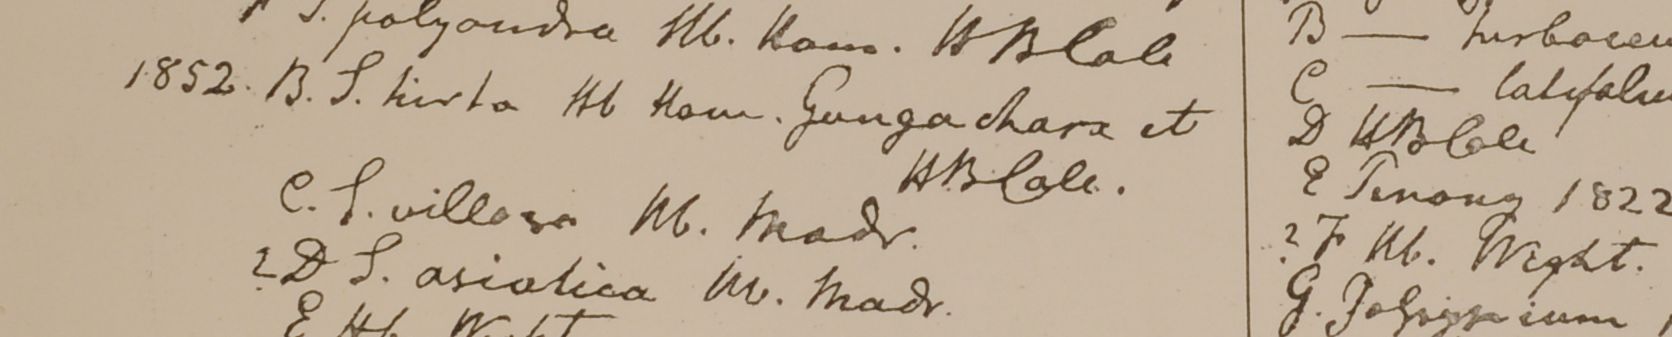 S. polyandra Hb. Ham. HBCalc
1852. B. S. hirta Hb Ham. Gongachora et
HBCalc.
C. S. villosa Hb. Madr.
? D S. asiatica Hb. Madr.
E Hb. Wight
B —
C — latifoliu
D HBCalc
E Penang 1822
? F Hb. Wight.
G.